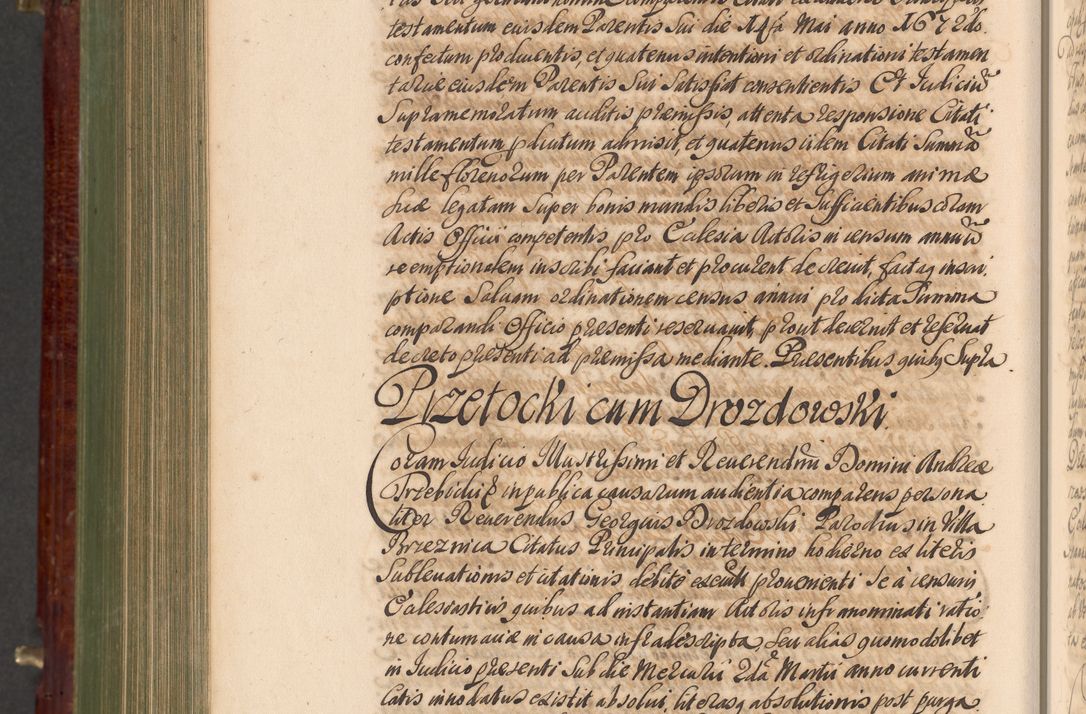 testamentum eiusdem Parentis Sui die 14ta Mai anno 1672do.
confectum producentis, et quatenus intentioni et ordinationi testamen
tariæ eiusdem Parentis Sui Satisfiat consentientis Et Iudiciũ
Supramemoratum auditis præmissis, attenta responsione Citati
testamentum pdictum admisit, et quatenus iidem Citati Summã
mille florenorum per Parentem ipsorum in refrigerium animæ
suæ legatam Super bonis mundis liberis et Sufficientibus coram
Actis Officii competentis pro Ecclesia Actoris in censum annuũ
reemptionalem inscribi faciant et procurent decrevit, factaq inscri
ptione Salvam ordinationem census annui pro dicta Summa
comparandi Officio præsenti reservavit, prout decernit et reservat
decreto præsenti ad præmissa mediante. Præsentibus quibq Supra
Przetocki cum Drozdowski.
Coram Iudicio Illustrissimi et Reverendmi Domini Andreæ
Trzebicki in publica causarum audientia comparens persona
liter Reverendus Georgius Drozdowski Parochus in Villa
Brzeznica Citatus Principalis in termino hodierno ex literis
Sublevationis et citationis debite executis provenienti Se a censuris
Ecclesiasticis quibus ad instantiam Actoris infranominati ratio
ne contumaciæ in causa infrascripta, Seu alias quomodolibet
in Iudicio præsenti Sub die Mercurii 2da Martii anno currenti
latis innodatus existit absolvi, literasq absolutionis post purga